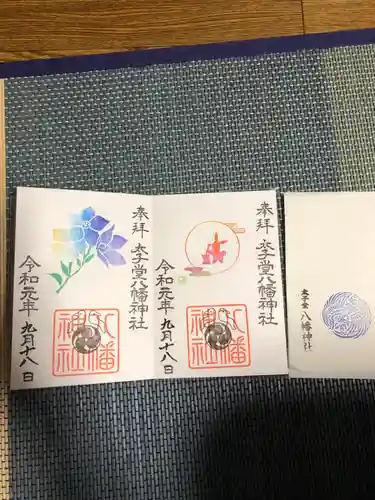 奉拝
太子堂八幡神社
令和元年 九月十八日
八幡神社
奉拝
太子堂八幡神社
令和元年 九月十八日
八幡神社
太子堂 八幡神社